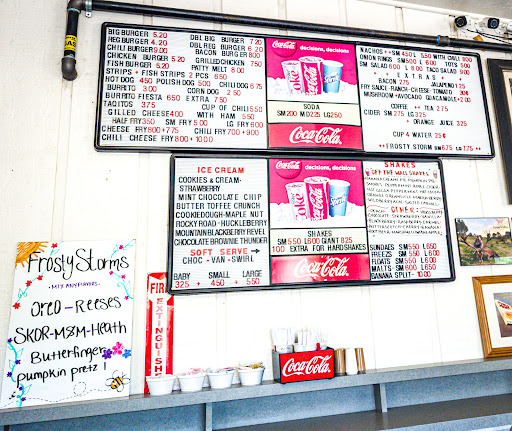 BIG BURGER 5.20
REG BURGER 4.20
CHILI BURGER 9.00
CHICKEN BURGER 5.20
FISH BURGER 5.20
STRIPS + FISH STRIPS 2 PCS 6.50
HOT DOG 4.50 POLISH DOG 5.00 CHILI DOG 6.75
BURRITO 3.00 CORN DOG 2.50
BURRITO FIESTA 6.50 EXTRA 7.50
TAQITOS 3.75 CUP OF CHILI 5.50
GILLED CHEESE 4.00 WITH HAM 5.50
HALF FRY 3.50 SM FRY 5.00 LG FRY
CHEESE FRY 8.00+7.75 CHILI FRY 7.00+9.00
CHILI CHEESE FRY 8.00+10.00
DBL BIG BURGER 7.20
DBL REG BURGER 6.20
BACON BURGER 8.00
GRILLED CHICKEN 7.50
PATTY MELT 8.00
Coca-Cola
decisions, decisions.
SODA
SM 2.00 M 2.25 LG 2.50
Coca-Cola
NACHOS ++ SM 4.50 L 5.50 WITH CHILI
ONION RINGS SM 5.00 LG 8.00
SM SALAD 6.00 L 8.00 TACO SALAD 9.00
+ + EXTRAS + +
BACON 2.75 JALAPENO 1.25
FRY SAUCE-RANCH-CHEESE-TOMATO
MUSHROOM-AVOCADO GUACAMOLE
COFFEE ++ TEA 2.75
CIDER SM 2.75 LG 3.25
++ ORANGE JUICE 3.25
CUP A WATER 25¢
++ FROSTY STORM M 6.75 L 7.75 ++
ICE CREAM
COOKIES & CREAM-
STRAWBERRY
MINT CHOCOLATE CHIP
BUTTER TOFFEE CRUNCH
COOKIEDOUGH-MAPLE NUT
ROCKY ROAD-HUCKLEBERRY
MOUNTAIN BLACKBERRY REVEL
CHOCOLATE BROWNIE THUNDER
SOFT SERVE →
CHOC - VAN - SWIRL
BABY SMALL LARGE
3.25 + 4.50 + 5.50
Coca-Cola
decisions, decisions.
SHAKES
SM 5.50 L 6.00 GIANT 8.25
1.00 EXTRA FOR HARDSHAKES
Coca-Cola
SHAKES
OFF THE WALL SHAKES
SUNDAES SM 5.50 L 6.50
FREEZS SM 5.50 L 6.50
FLOATS SM 5.50 L 6.50
MALTS SM 6.00 L 6.50
BANANA SPLIT - 10.00
Frosty Storms
-MIX ANY FLAVORS-
Oreo - Reeses
SKOR - M&M - Heath
Butterfinger
pumpkin pretz!
FIRE
EXTINGUISHER
Coca-Cola